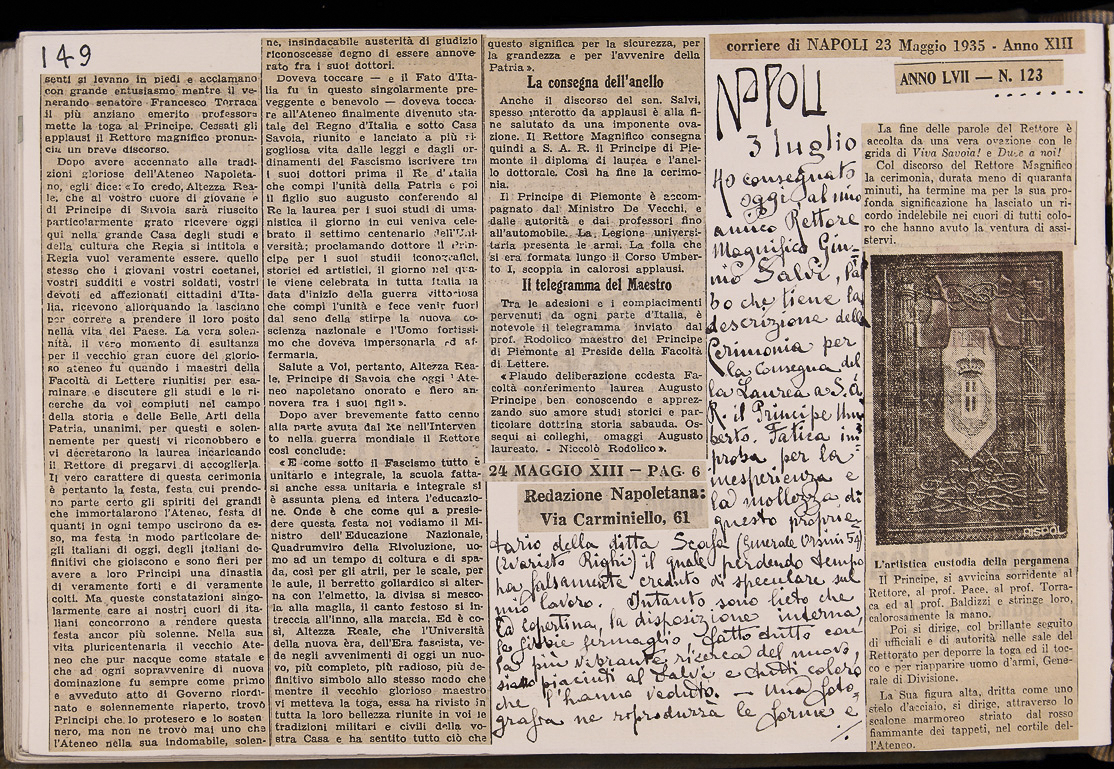 149
senti si levano in piedi e acclamano
con grande entusiasmo, mentre il ve-
nerando senatore Francesco Torraca
il più anziano emerito professore
mette la toga al Principe. Cessati gli
applausi il Rettore magnifico pronun-
cia un breve discorso.
Dopo avere accennato alle tradi-
zioni gloriose dell'Ateneo Napoleta-
no, egli dice: «Io credo, Altezza Rea-
le, che al vostro cuore di giovane e
di Principe di Savoia sarà riuscito
particolarmente grato ricevere oggi
qui nella grande Casa degli studi e
della cultura che Regia si intitola e
Regia vuol veramente essere. quello
stesso che i giovani vostri coetanei,
vostri sudditi e vostri soldati, vostri
devoti ed affezionati cittadini d'Ita-
lia, ricevono allorquando la lasciano
per correre a prendere il loro posto
nella vita del Paese. La vera solen-
nità, il vero momento di esultanza
per il vecchio gran cuore del glorio-
so ateneo fu quando i maestri della
Facoltà di Lettere riunitisi per esa-
minare e discutere gli studi e le ri-
cerche da voi compiuti nel campo
della storia e delle Belle Arti della
Patria, unanimi, per questi e solen-
nemente per questi vi riconobbero e
vi decretarono la laurea incaricando
il Rettore di pregarvi di accoglierla.
Il vero carattere di questa cerimonia
è pertanto la festa, festa cui prendo-
no parte certo gli spiriti dei grandi
che immortalarono l'Ateneo, festa di
quanti in ogni tempo uscirono da es-
so, ma festa in modo particolare de-
gli italiani di oggi, degli italiani de-
finitivi che gioiscono e sono fieri per
avere a loro Principi una dinastia
di veramente forti e di veramente
colti. Ma queste constatazioni singo-
larmente care ai nostri cuori di ita-
liani concorrono a rendere questa
festa ancor più solenne. Nella sua
vita pluricentenaria il vecchio Ate-
neo che pur nacque come statale e
che ad ogni sopravvenire di nuova
dominazione fu sempre come primo
e avveduto atto di Governo riordi-
nato e solennemente riaperto, trovò
Principi che lo protesero e lo sosten
nero, ma non ne trovò mai uno che
l'Ateneo nella sua indomabile, solen-
ne, insindacabile austerità di giudizio
riconoscesse degno di essere annove-
rato fra i suoi dottori.
Doveva toccare — e il Fato d'Ita-
lia fu in questo singolarmente pre-
veggente e benevolo — doveva tocca-
re all'Ateneo finalmente divenuto sta-
tale del Regno d'Italia e sotto Casa
Savoia, riunito e lanciato a più ri-
gogliosa vita dalle leggi e dagli or-
dinamenti del Fascismo iscrivere tra
i suoi dottori prima il Re d'Italia
che compì l'unità della Patria e poi
il figlio suo augusto conferendo al
Re la laurea per i suoi studi di uma-
nistica il giorno in cui veniva cele-
brato il settimo centenario dell'Uni-
versità; proclamando dottore il Prin-
cipe per i suoi studi iconografici,
storici ed artistici, il giorno nel qua-
le viene celebrata in tutta Italia la
data d'inizio della guerra vittoriosa
che compì l'unità e fece venir fuori
dal seno della stirpe la nuova co-
scienza nazionale e l'Uomo fortissi-
mo che doveva impersonarla ed af-
fermarla.
Salute a Voi, pertanto, Altezza Rea-
le, Principe di Savoia che oggi l'Ate-
neo napoletano onorato e fiero an-
novera fra i suoi figli ».
Dopo aver brevemente fatto cenno
alla parte avuta dal Re nell'Interven
to nella guerra mondiale il Rettore
così conclude:
«E come sotto il Fascismo tutto è
unitario e integrale, la scuola fatta-
si anche essa unitaria e integrale si
è assunta piena ed intera l'educazio-
ne. Onde è che come qui a presie-
dere questa festa noi vediamo il Mi-
nistro dell'Educazione Nazionale,
Quadrumviro della Rivoluzione, uo-
mo ad un tempo di coltura e di spa-
da, così per gli atrii, per le scale, per
le aule, il berretto goliardico si alter-
na con l'elmetto, la divisa si mesco-
la alla maglia, il canto festoso si in-
treccia all'inno, alla marcia. Ed è co-
sì, Altezza Reale, che l'Università
della nuova èra, dell'Era fascista, ve-
de negli avvenimenti di oggi un nuo-
vo, più completo, più radioso, più de-
finitivo simbolo allo stesso modo che
mentre il vecchio glorioso maestro
vi metteva la toga, essa ha rivisto in
tutta la loro bellezza riunite in voi le
tradizioni militari e civili della vo-
stra Casa e ha sentito tutto ciò che
questo significa per la sicurezza, per
la grandezza e per l'avvenire della
Patria ».
La consegna dell'anello
Anche il discorso del sen. Salvi,
spesso interotto da applausi è alla fi-
ne salutato da una imponente ova-
zione. Il Rettore Magnifico consegna
quindi a S. A. R. il Principe di Pie-
monte il diploma di laurea e l'anel-
lo dottorale. Così ha fine la cerimo-
nia.
Il Principe di Piemonte è accom-
pagnato dal Ministro De Vecchi, e
dalle autorità e dai professori fino
all'automobile. La Legione universi-
taria presenta le armi. La folla che
si era formata lungo il Corso Umber-
to I, scoppia in calorosi applausi.
Il telegramma del Maestro
Tra le adesioni e i compiacimenti
pervenuti da ogni parte d'Italia, è
notevole il telegramma inviato dal
prof. Rodolico maestro del Principe
di Piemonte al Preside della Facoltà
di Lettere.
«Plaudo deliberazione codesta Fa-
coltà conferimento laurea Augusto
Principe, ben conoscendo e apprez-
zando suo amore studi storici e par-
ticolare dottrina storia sabauda. Os-
sequi ai colleghi, omaggi Augusto
laureato. - Niccolò Rodolico ».
24 MAGGIO XIII — PAG. 6
Redazione Napoletana:
Via Carminiello, 61
corriere di NAPOLI 23 Maggio 1935 - Anno XIII
ANNO LVII — N. 123
NAPOLI
3 luglio
Ho consegnato
oggi al mio
amico Rettore
Magnifico Giun-
nio Salvi, l'al
bo che tiene la
descrizione della
Cerimonia per
la Consegna del
la Laurea a S. A.
R. il Principe Um
berto. Fatica im
proba per la
inesperienza e
la mollezza di
questo proprie-
tario della ditta Scafa (Generale Orsini 59)
(Evaristo Righi) il quale perdendo tempo
ha falsamente creduto di speculare sul
mio lavoro. Intanto sono lieto che
la copertina, la disposizione interna,
le fibbie fermaglio fatto tutto con
la più vibrante ricerca del nuovo,
siano piaciuti al Salvi e a tutti coloro
che l'hanno veduto. — Una foto-
grafia ne riprodurrà le forme e
La fine delle parole del Rettore è
accolta da una vera ovazione con le
grida di Viva Savoia! e Duce a noi!
Col discorso del Rettore Magnifico
la cerimonia, durata meno di quaranta
minuti, ha termine ma per la sua pro-
fonda significazione ha lasciato un ri-
cordo indelebile nei cuori di tutti colo-
ro che hanno avuto la ventura di assi-
stervi.
L'artistica custodia della pergamena
Il Principe, si avvicina sorridente al
Rettore, al prof. Pace. al prof. Torra-
ca ed al prof. Baldizzi e stringe loro,
calorosamente la mano.
Poi si dirige, col brillante seguito
di ufficiali e di autorità nelle sale del
Rettorato per deporre la toga ed il toc-
co e per riapparire uomo d'armi, Gene-
rale di Divisione.
La Sua figura alta, dritta come uno
stelo d'acciaio, si dirige, attraverso lo
scalone marmoreo striato dal rosso
fiammante dei tappeti, nel cortile del-
l'Ateneo.